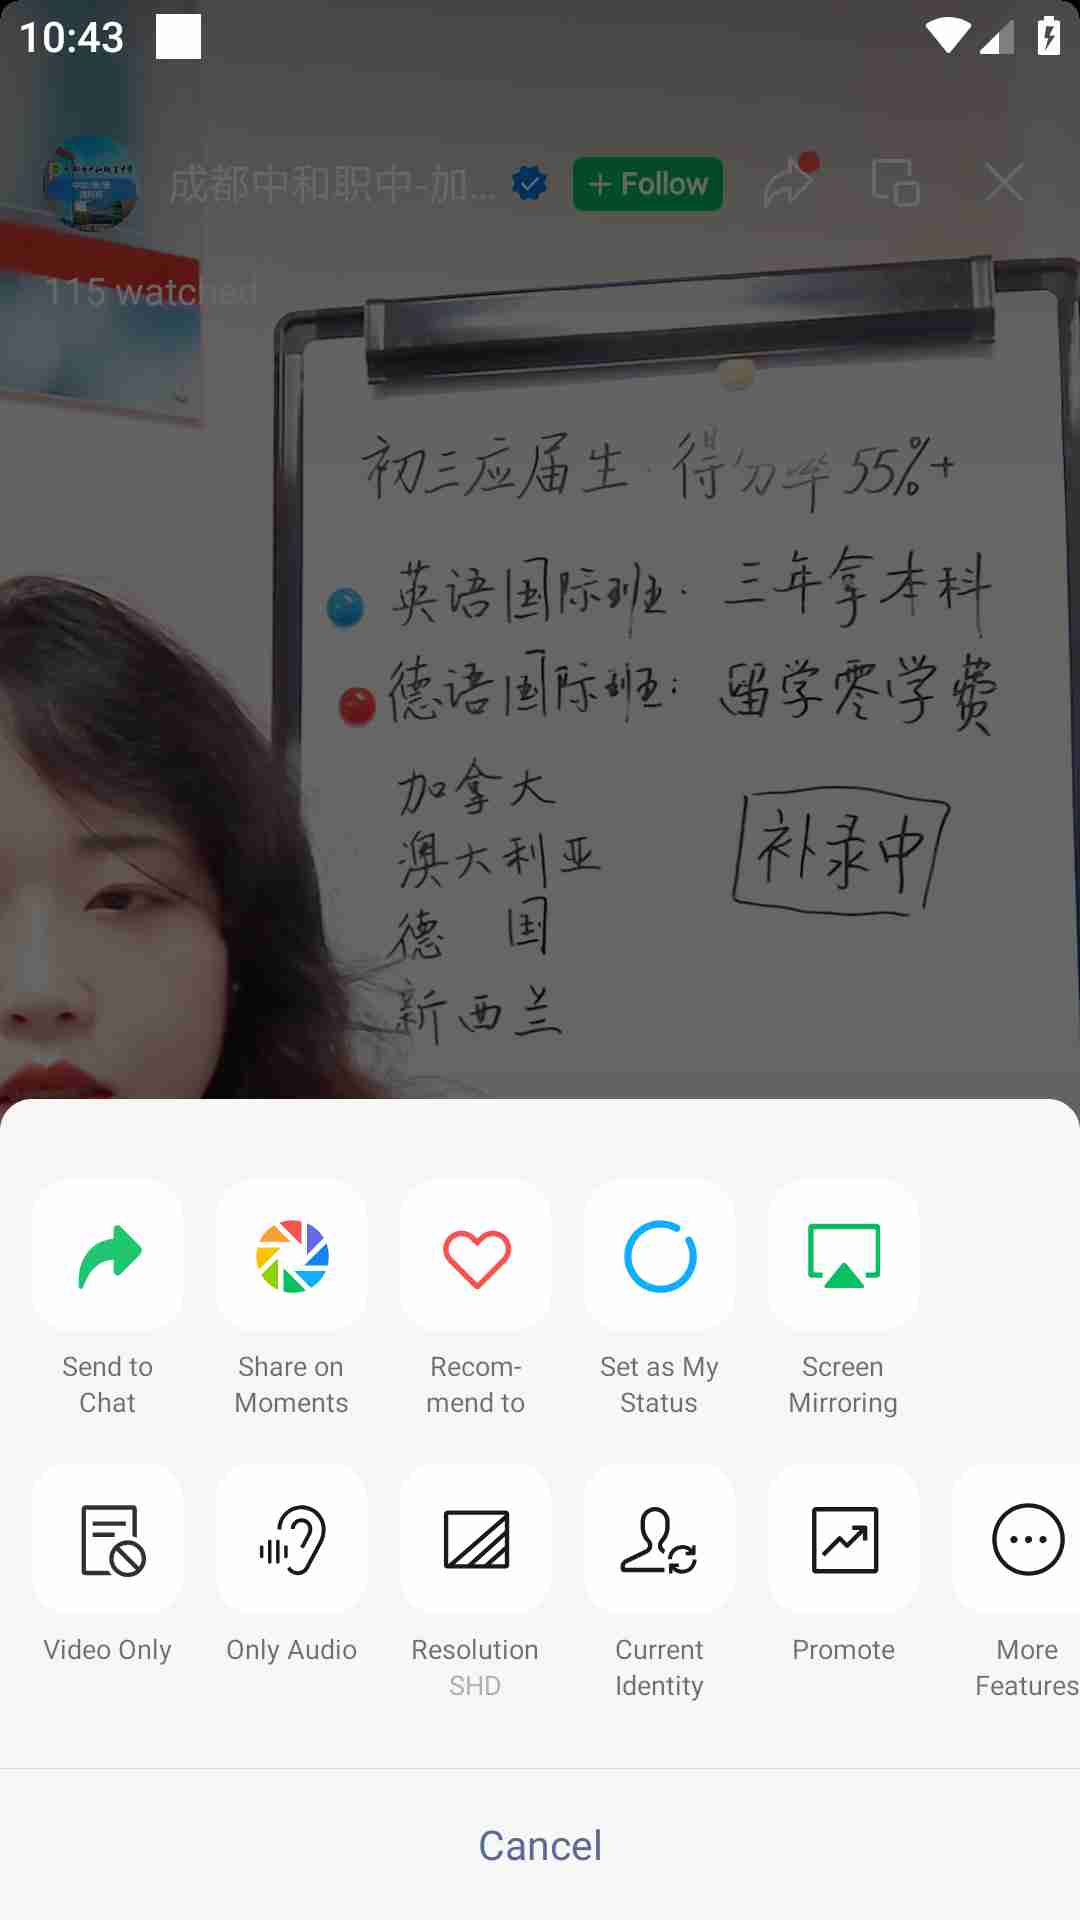 10:43
成都中和职中-加...
+ Follow
115 watched
初三应届生·得分率 55%+
英语国际班· 三年拿本科
德语国际班: 留学零学费
加拿大
澳大利亚
补录中
德 国
新西兰
Send to
Chat
Share on
Moments
Recom-
mend to
Set as My
Status
Screen
Mirroring
Video Only
Only Audio
Resolution
SHD
Current
Identity
Promote
More
Features
Cancel